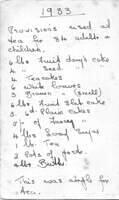 1933
Provisions used at
tea for 84 adults &
children.
6 lbs Fruit dough cake
" Seed " "
4 Teacakes
6 white loaves
3 Brown " (small)
6 lbs Fruit Slab cake
3 Plain cakes
of Fancy "
4 lbs Loaf Sugar
1 lb. Tea
2 pots of paste.
lbs Butter
This was ample for
tea.